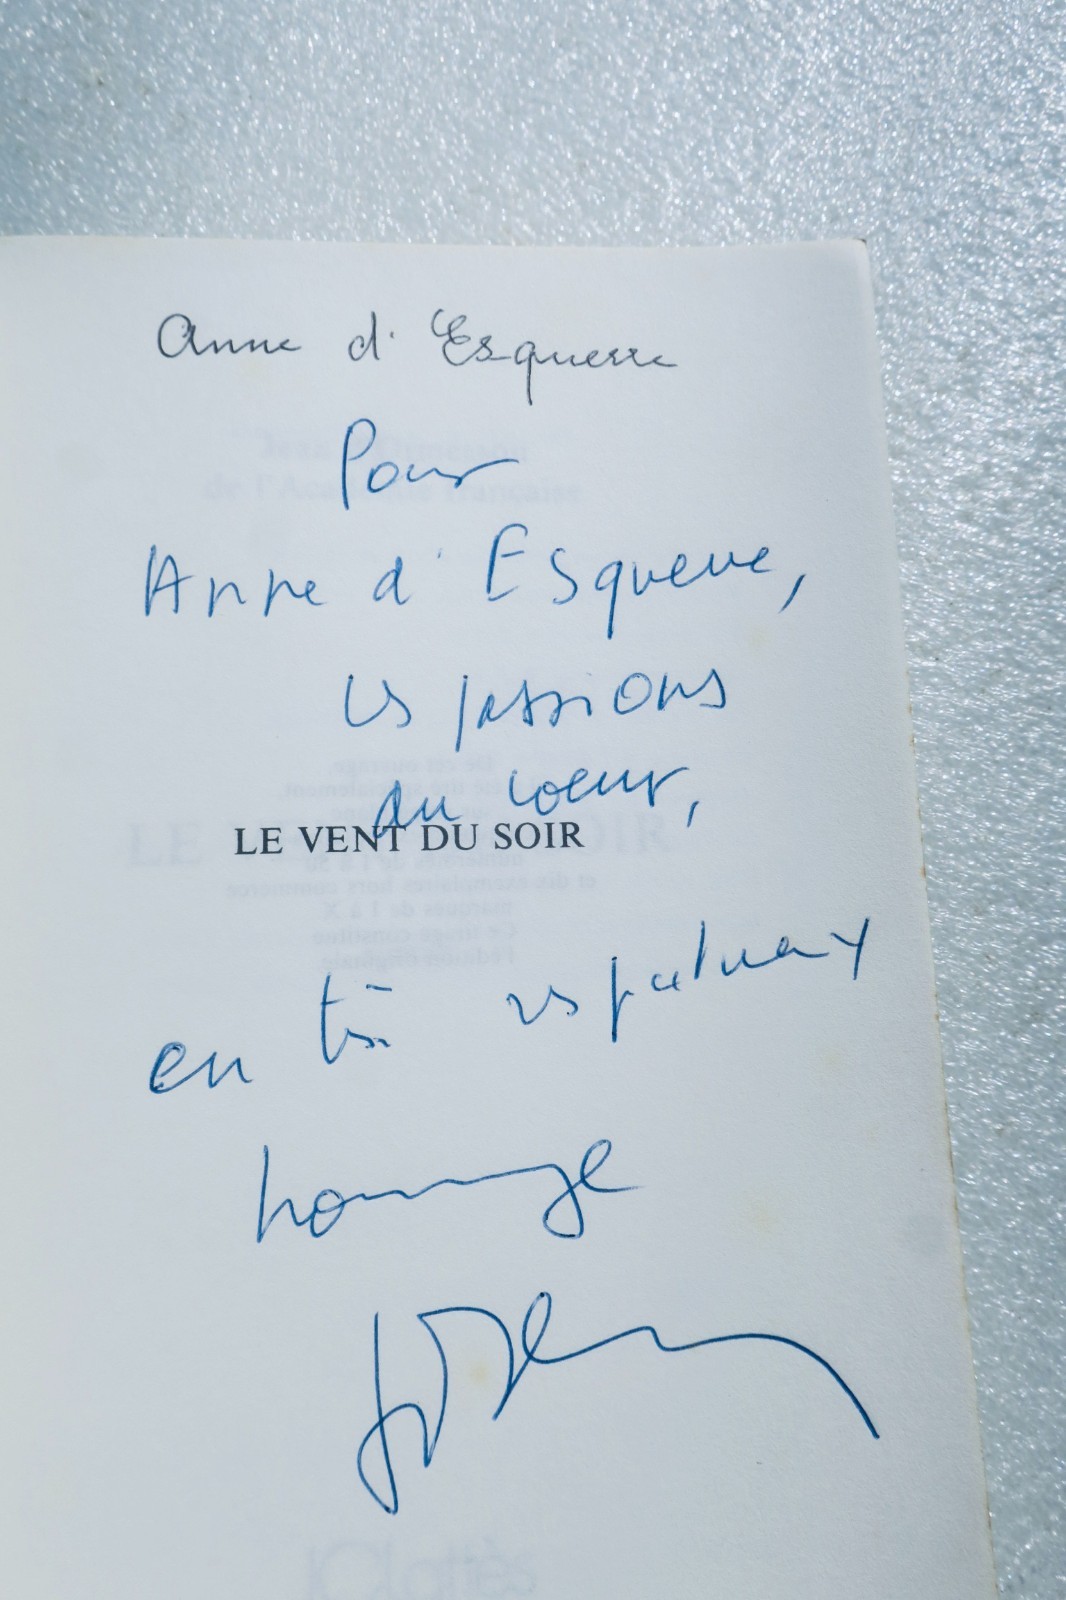 Anne d'Esquerre
Pour
Anne d'Esquerre,
les passions
du coeur,
LE VENT DU SOIR
en très respectueux
hommage